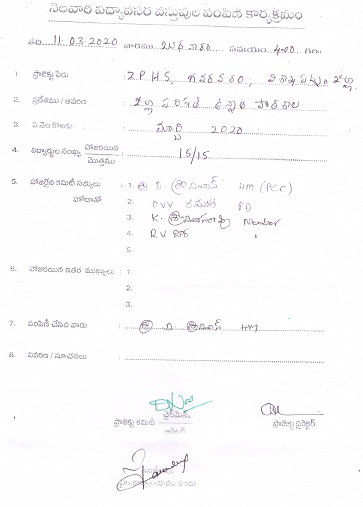 నెలవారీ విద్యావసర వస్తువుల పంపిణి కార్యక్రమం
తేది 11-03-2020 వారము బుధవారం సమయం 4:00 గం
1. ప్రాజెక్టు పేరు : Z.P.H.S, గవరవరం, విశాఖపట్నం జిల్లా
2. ప్రదేశము / ఆవరణ : జిల్లా పరిషత్ ఉన్నత పాఠశాల
3. ఏ నెల కొరకు : మార్చి 2020
4. విద్యార్థుల సంఖ్య హాజరయిన / మొత్తము : 15/15
5. హాజరైన కమిటీ సభ్యులు : 1. శ్రీ D. శ్రీనివాస్ HM (PCC)
హోదాతో 2. DVV రమణ PD
3. K. Member
4. RV
5.
6. హాజరయిన ఇతర ముఖ్యులు : 1.
2.
3.
7. పంపిణీ చేసిన వారు : శ్రీ D. శ్రీనివాస్ HM
8. వివరణ / సూచనలు :
ప్రాజెక్టు కమిటీ ఛైర్మెన్
ప్రాజెక్టు డైరెక్టర్